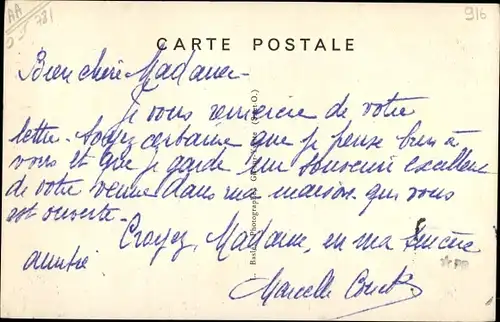 916
781
CARTE POSTALE
Bien chère Madame
Je vous remercie de votre
lettre. Soyez certaine que je pense bien à
vous et que je garde un souvenir excellent
de votre venue dans ma maison qui vous
est ouverte.
Croyez, Madame, en ma sincère
amitié
Marcelle